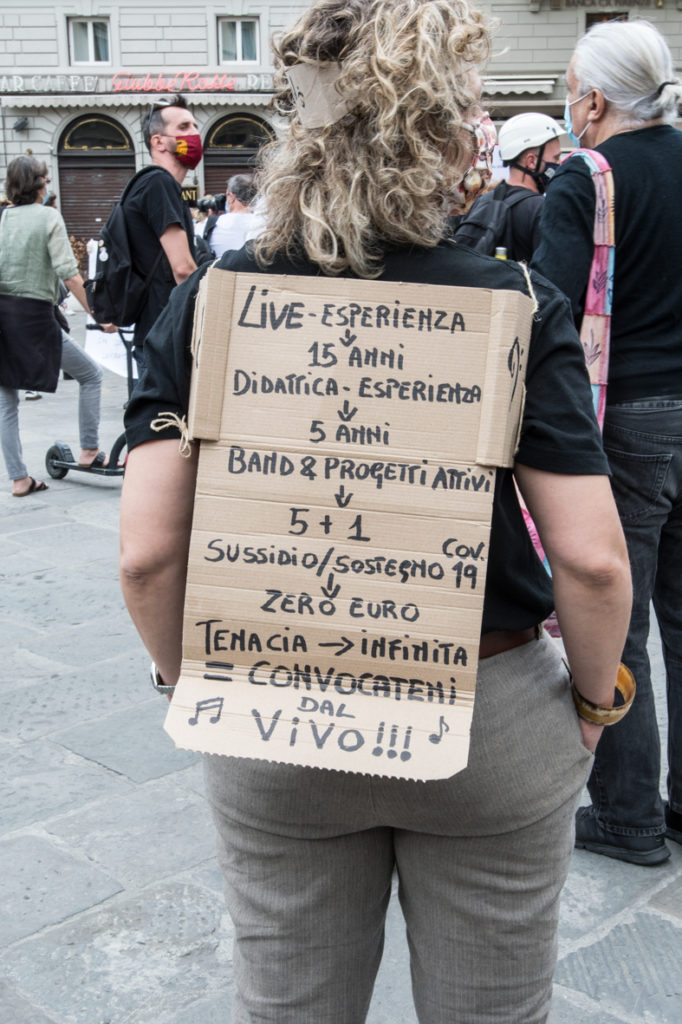 BAR CAFFÈ Giubbe Rosse
LIVE - ESPERIENZA
↓
15 ANNI
DIDATTICA - ESPERIENZA
↓
5 ANNI
BAND & PROGETTI ATTIVI
↓
5 + 1
SUSSIDIO/SOSTEGNO COV. 19
↓
ZERO EURO
TENACIA → INFINITA
= CONVOCATEMI
DAL
VIVO!!!